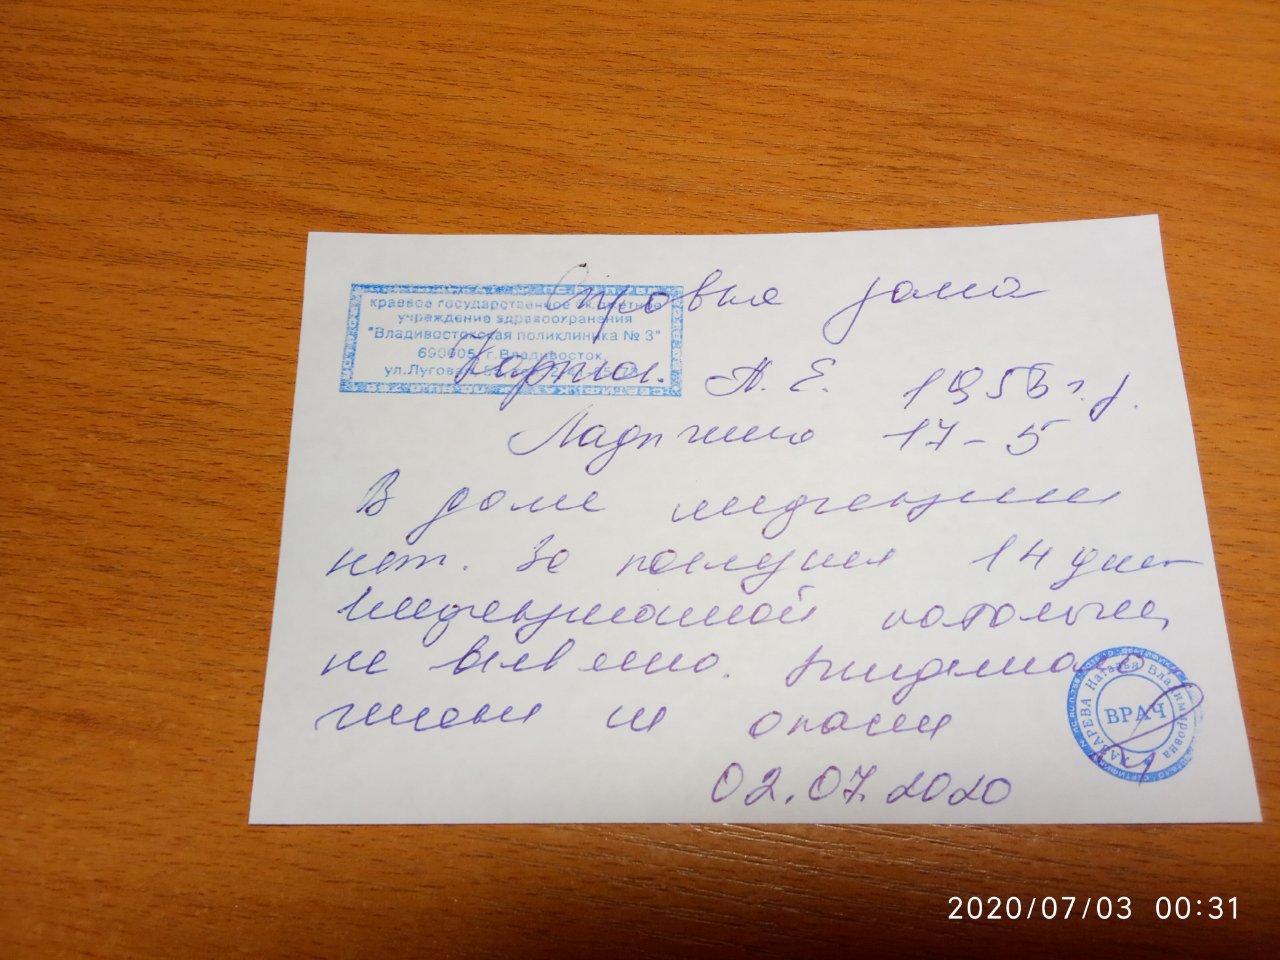 Справка дана
краевое государственное бюджетное
учреждение здравоохранения
"Владивостокская поликлиника № 3"
690005, г.Владивосток
ул.Луговая
А. Е. 1956 г.р.
17-5
В доме инфекции
нет. За последние 14 дней
инфекционной патологии
не выявлено. Эпидемиоло
гически не опасен
ЛАЗАРЕВА Наталья Владимировна
ВРАЧ
02.07.2020
2020/07/03 00:31